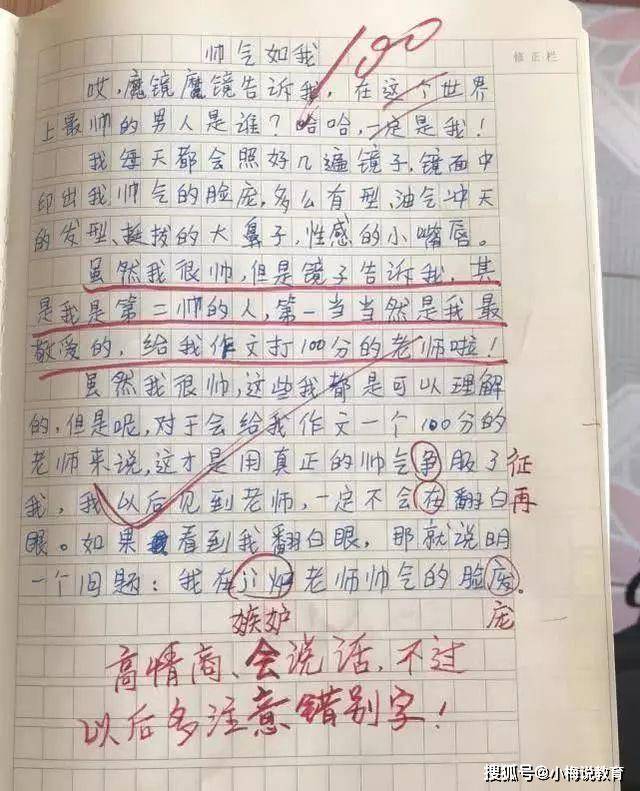 帅气如我
100
修正栏
哎，魔镜魔镜告诉我，在这个世界
上最帅的男人是谁？哈哈，一定是我！
我每天都会照好几遍镜子，镜面中
印出我帅气的脸庞，多么有型、油气冲天
的发型、挺拔的大鼻子，性感的小嘴唇。
虽然我很帅，但是镜子告诉我，其
是我是第二帅的人，第一当当然是我最
敬爱的，给我作文打100分的老师啦！
虽然我很帅，这些我都是可以理解
的，但是呢，对于会给我作文一个100分的
老师来说，这才是用真正的帅气争服了 征
我，我以后见到老师，一定不会在翻白 再
眼。如果看到我翻白眼，那就说明
一个问题：我在老师帅气的脸庞。
嫉妒 庞
高情商、会说话，不过
以后多注意错别字！
搜狐号@小梅说教育